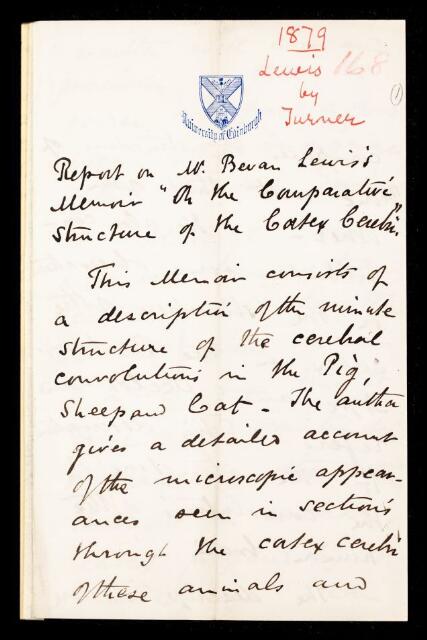 1879
Lewis 168
by
Turner
(1)
University of Edinburgh
Report on Mr. Bevan Lewis's
Memoir "On the Comparative
Structure of the Cortex Cerebri."
This Memoir consists of
a description of the minute
structure of the cerebral
convolutions in the Pig,
Sheep and Cat – The author
gives a detailed account
of the microscopic appear-
ances seen in sections
through the cortex cerebri
of these animals and